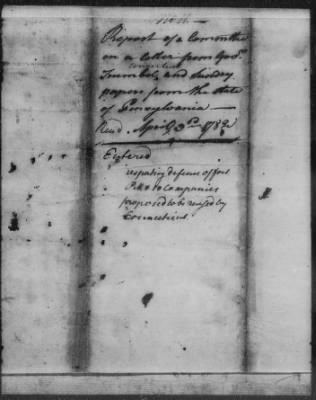 Report of a Committee
on a letter from Govr.
Connecticut
Trumbul, and Sundry
papers from the state
of Pennsylvania —
Read April 3rd 1782
Entered
respecting defence of fort
& 10 Companies
proposed to be raised by
Connecticut